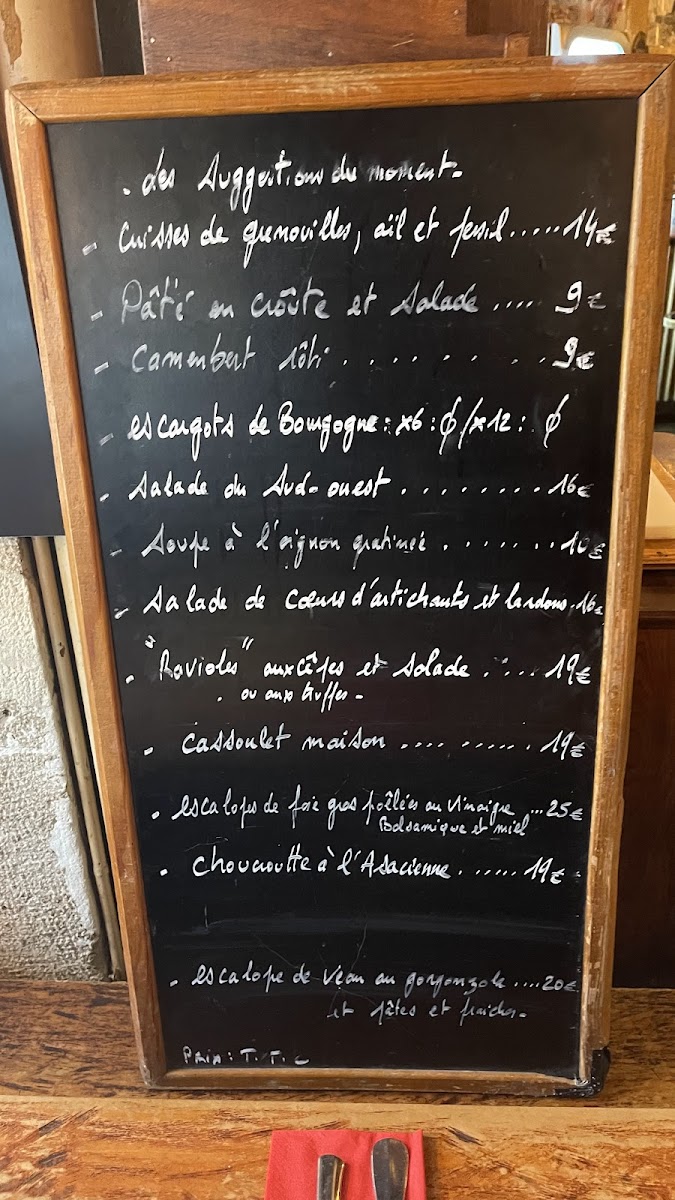 . des Suggestions du moment -
- Cuisses de grenouilles, aïl et persil ..... 14€
- Pâté en croûte et Salade .... 9€
- Camembert rôti . . . . . . . . . 9€
- escargots de Bourgogne : x6 : ∅ / x12 : ∅
- Salade du Sud-ouest . . . . . . . . 16€
- Soupe à l'oignon gratinée . . . . . . . 10€
- Salade de cœurs d'artichauts et lardons . 16€
- "Ravioles" aux cêpes et Salade . . ... 19€
. ou aux truffes -
- Cassoulet maison .... ..... . 19€
. escalopes de foie gras poêlées au vinaigre ... 25€
Balsamique et miel
. Choucroutte à l'Asacienne . ..... 19€
. escalope de veau au gorgonzola .... 20€
et pâtes et fraiches -
Prix : T.T.C